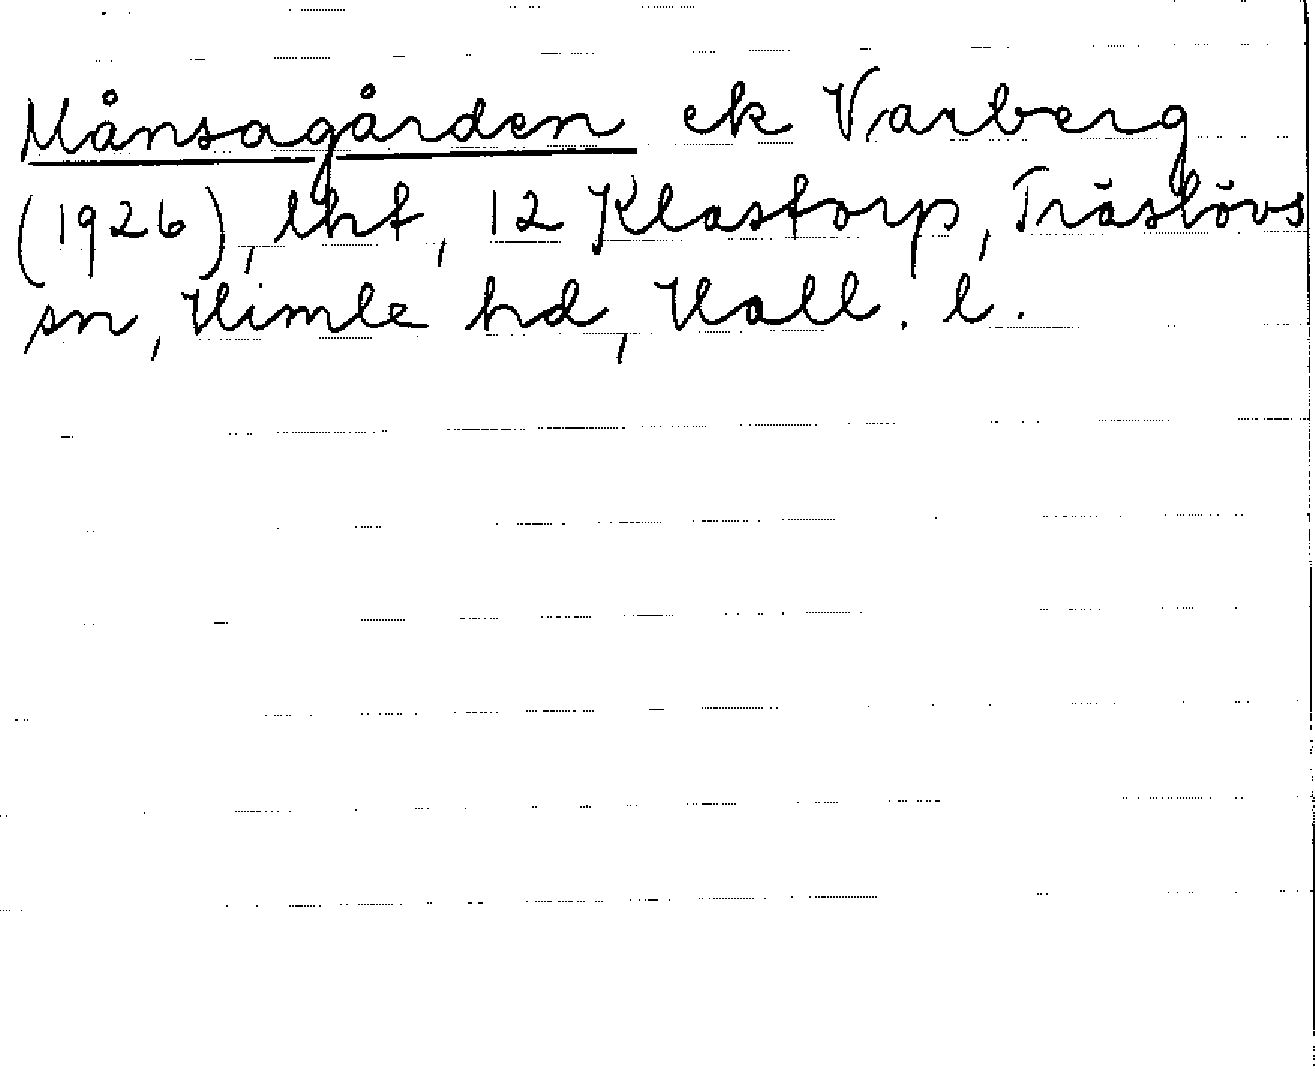 Månsagården ek Varberg
(1926), lht, 12 Klastorp, Träslövs
sn, Himle hd, Hall. l.